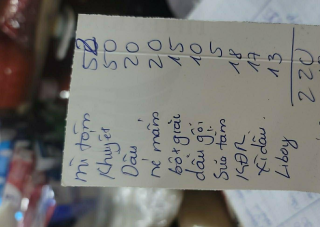 mì tôm 52
Khuyết 50
Dầu 20
né mâm 20
bột giặt 15
dầu gội 10
Sữa tắm 5
KĐR 18
Xì dầu. 17
Liboy 13
220